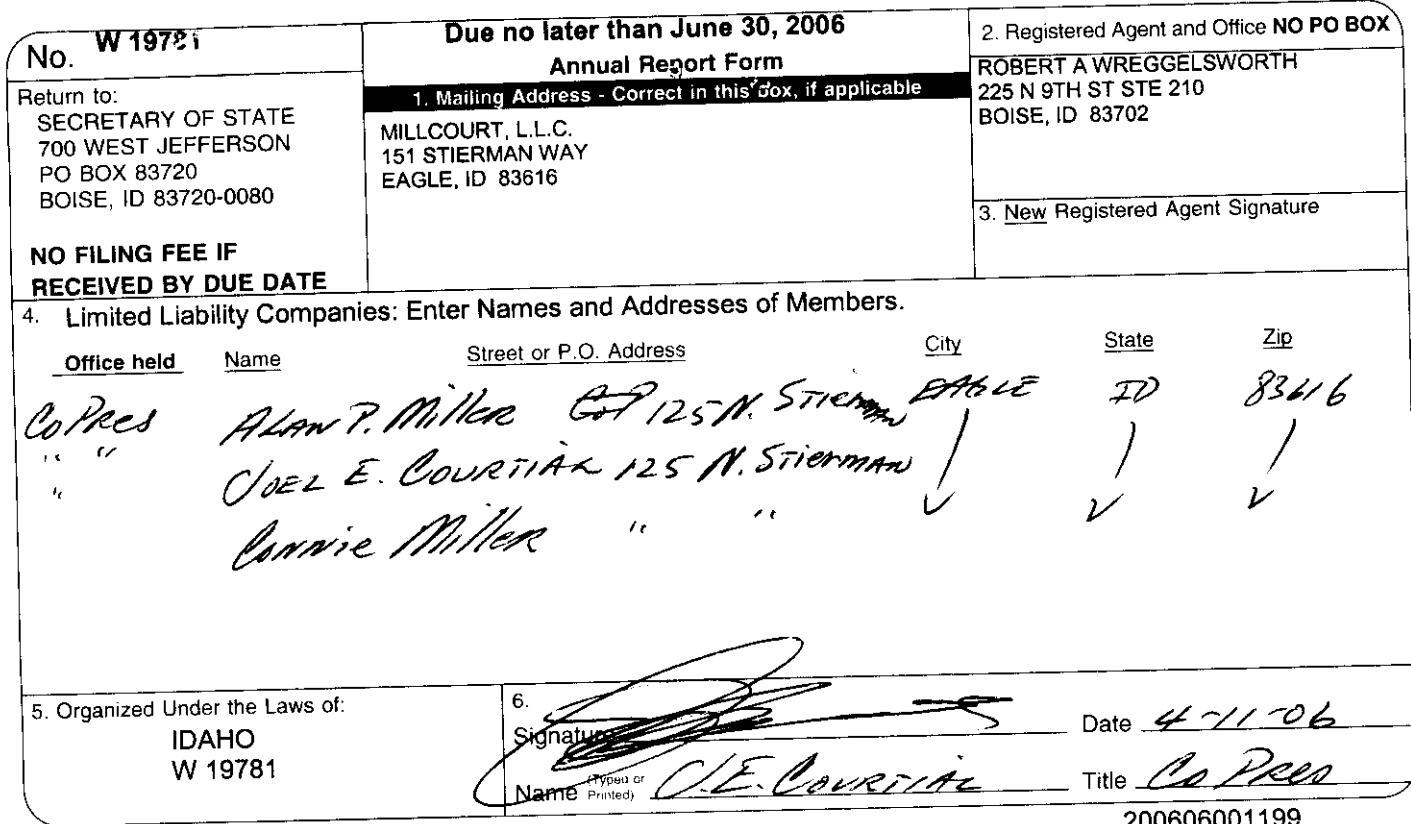 No. W 19781
Return to:
SECRETARY OF STATE
700 WEST JEFFERSON
PO BOX 83720
BOISE, ID 83720-0080
NO FILING FEE IF
RECEIVED BY DUE DATE
Due no later than June 30, 2006
Annual Report Form
1. Mailing Address - Correct in this box, if applicable
MILLCOURT, L.L.C.
151 STIERMAN WAY
EAGLE, ID 83616
2. Registered Agent and Office NO PO BOX
ROBERT A WREGGELSWORTH
225 N 9TH ST STE 210
BOISE, ID 83702
3. New Registered Agent Signature
4. Limited Liability Companies: Enter Names and Addresses of Members.
Office held Name Street or P.O. Address City State Zip
Co Pres ALAN P. Miller 125 N. Stierman EAGLE ID 83616
" " JOEL E. COURTIAL 125 N. Stierman
" Connie Miller " "
5. Organized Under the Laws of:
IDAHO
W 19781
6.
Signature Date 4-11-06
Name (Typed or Printed) J.E. COURTIAL Title Co Pres
200606001199